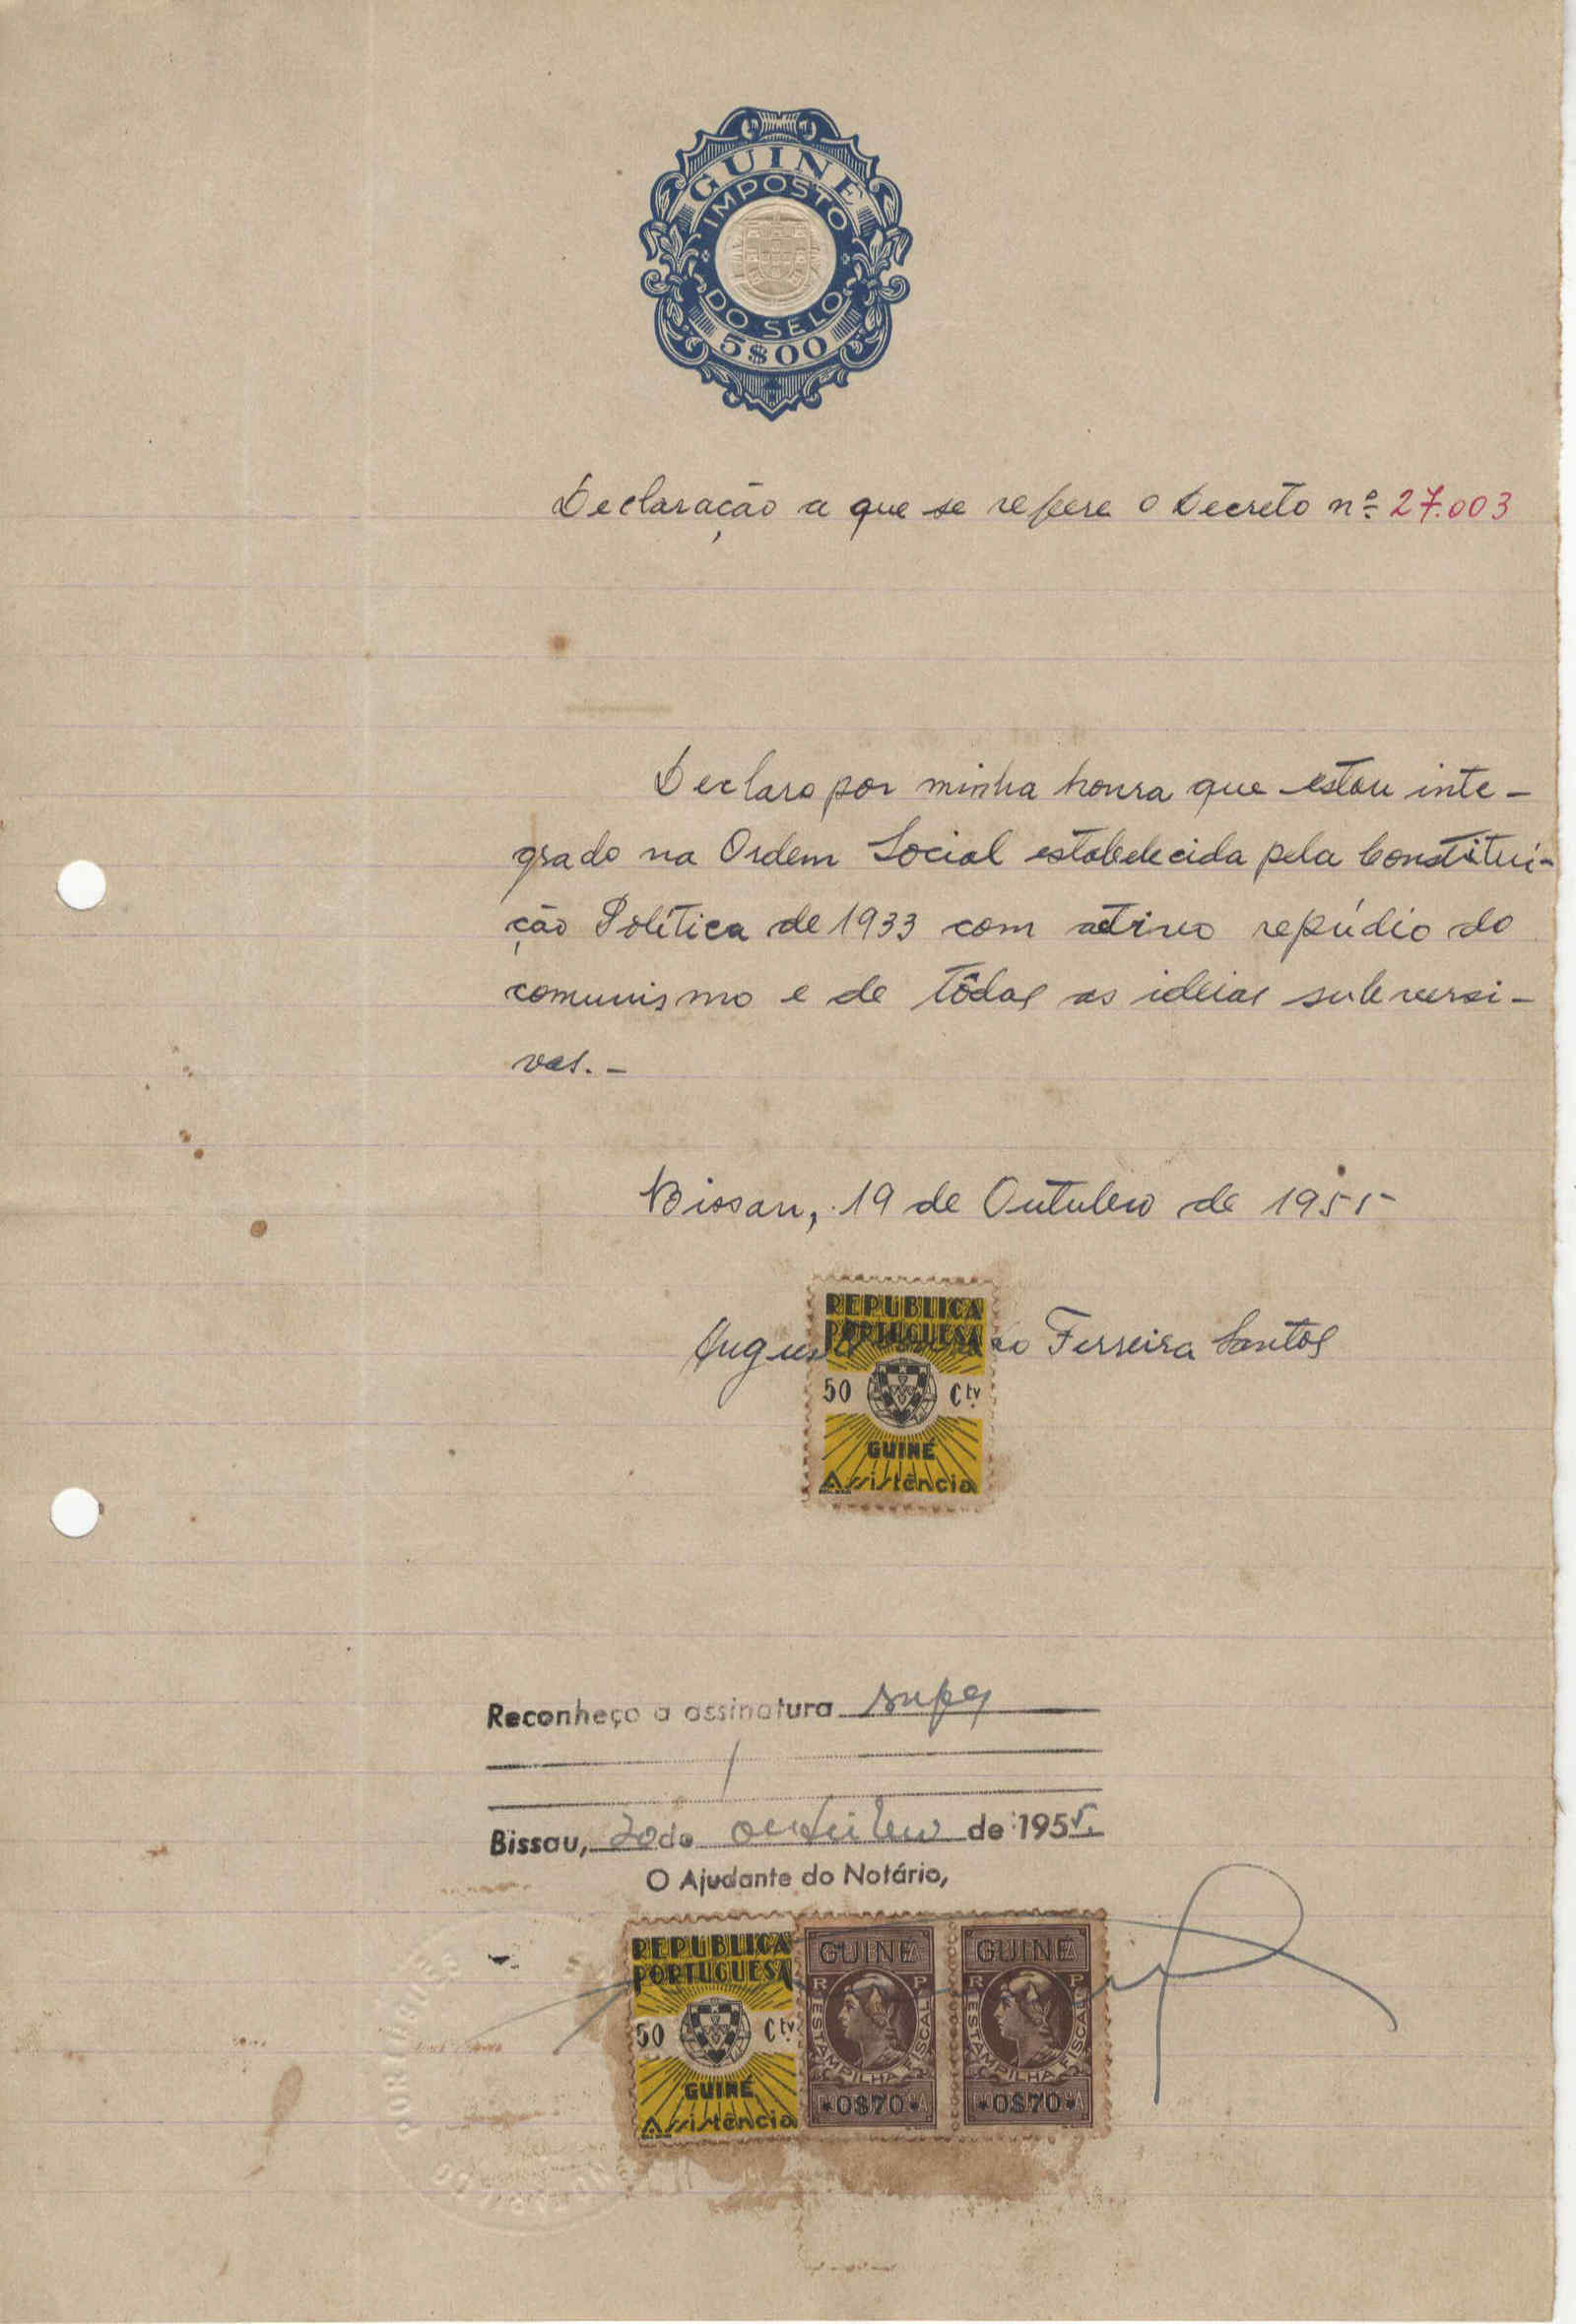 GUINÉ
IMPOSTO
DO SELO
5$00
Declaração a que se refere o Decreto nº 27.003
Declaro por minha honra que estou inte-
grado na Ordem Social estabelecida pela Constitui-
ção Política de 1933 com activo repúdio do
comunismo e de tôdas as ideias subversi-
vas. -
Bissau, 19 de Outubro de 1955
REPÚBLICA
PORTUGUESA
Ferreira Santos
50 Ctv
GUINÉ
Assistência
Reconheço a assinatura supra
Bissau, 20 de outubro de 1955.
O Ajudante do Notário,
REPÚBLICA
PORTUGUESA
50 Ctv
GUINÉ
Assistência
GUINÉ
R P
ESTAMPILHA FISCAL
0$70
GUINÉ
R P
ESTAMPILHA FISCAL
0$70